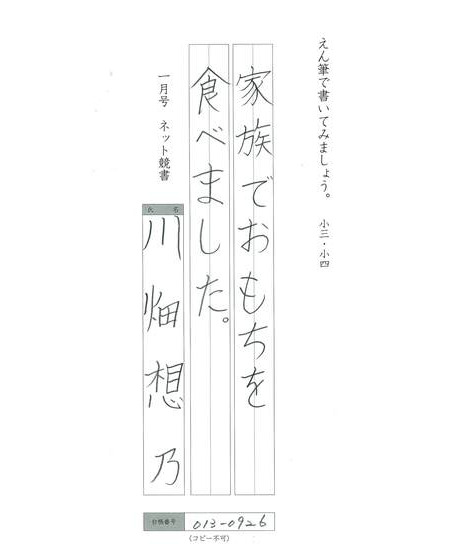 えん筆で書いてみましょう。 小三・小四
家族でおもちを
食べました。
一月号 ネット競書
氏名
川畑想乃
台帳番号 013-0926
(コピー不可)